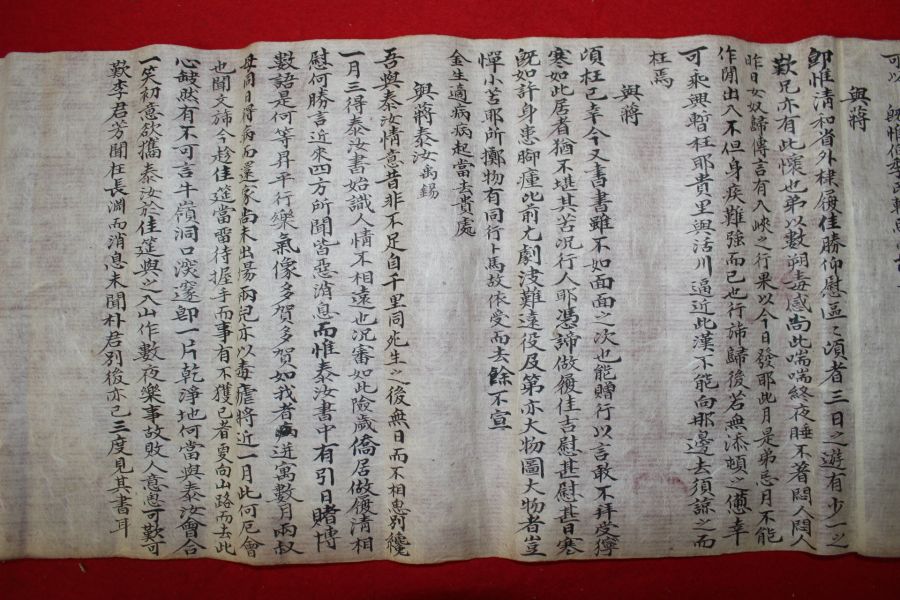 與蔣
卽惟淸和省外棣履佳勝仰慰區〻頃者三日之遊有少一之
歎兄亦有此懷也弟以數朔毒感尙此喘喘終夜睡不著悶人悶人
昨日女奴諦傳言有入峽之行果以今日發耶此月是弟忌月不能
作閒出入不但身疾難强而已也行旆歸後若無添頓之憊幸
可乘興暫枉耶貴里與活川逼近此漢不能向那邊去須諒之而
枉焉
與蔣
頃枉已幸今又書書雖不如面面之次也能贈行以言敢不拜受獰
寒如此居者猶不堪其苦况行人耶憑諦做履佳吉慰甚慰甚日寒
旣如許身患脚瘇比前尤劇淺難遠役及第亦大物圖大物者豈
憚小苦耶所擲物有同行卜馬故依受而去餘不宣
金生適病病起當去貴處
與蔣泰汝禹錫
吾與泰汝情意昔非不足自千里同死生之後無日而不相思別纔
一月三得泰汝書始識人情不相遠也况審如此險歲僑居做履淸相
慰何勝言近來四方所聞皆惡消息而惟泰汝書中有引日賭博
數語是何等昇平行樂氣像多賀多賀如我者病迸寓數月兩叔
母同日得病而還家尙未出場兩兒亦以毒瘧將近一月此何厄會
也聞文諦今趁佳筵當留待握手而事有不獲已者更向山路而去此
心缺然有不可言牛嶺洞口深邃卽一片乾淨地何當與泰汝會合
一笑初意欲攜泰汝於佳筵與之入山作數夜樂事故敗人意思可歎可
歎李君芳聞在長淵而消息未聞朴君別後亦已三度見其書耳